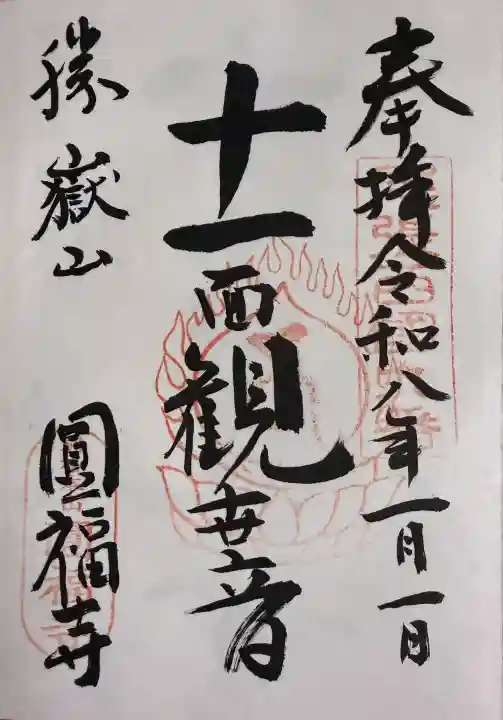 奉拝令和八年一月一日
十一面観世音
勝嶽山
圓福寺